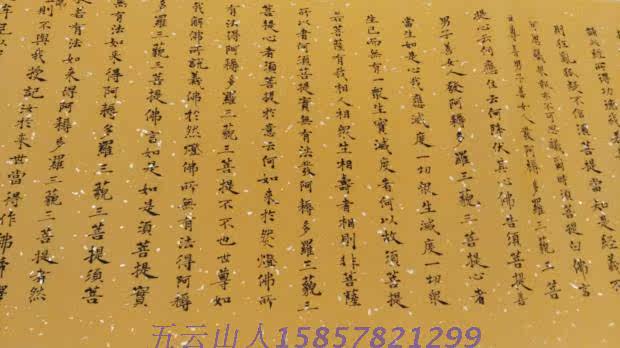 誦此經所得功德我若
則狂亂狐疑不信須菩提當知是經義不
可思議果報亦不可思議爾時須菩提白佛言
世尊善男子善女人發阿耨多羅三藐三菩
提心云何應住云何降伏其心佛告須菩提善
男子善女人發阿耨多羅三藐三菩提心者
當生如是心我應滅度一切眾生滅度一切眾
生已而無有一眾生實滅度者何以故須菩提
若菩薩有我相人相眾生相壽者相則非菩薩
所以者何須菩提實無有法發阿耨多羅三藐三
菩提心者須菩提於意云何如來於然燈佛所
有法得阿耨多羅三藐三菩提不不也世尊如
我解佛所說義佛於然燈佛所無有法得阿耨
多羅三藐三菩提佛言如是如是須菩提實
無有法如來得阿耨多羅三藐三菩提須菩
若有法如來得阿耨多羅三藐三菩提者然
則不與我授記汝於來世當得作佛號釋
牟尼以
五云山人15857821299